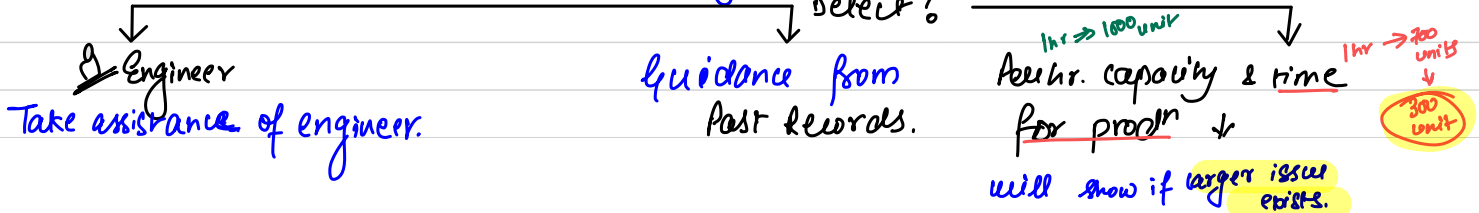 Detect?
Engineer
Take assistance of engineer.
Guidance from
Past Records.
1hr ⇒ 1000 unit
capacity & time
for prodn ↓
will show if larger issue
exists.
1hr → 700
units
↓
300
unit